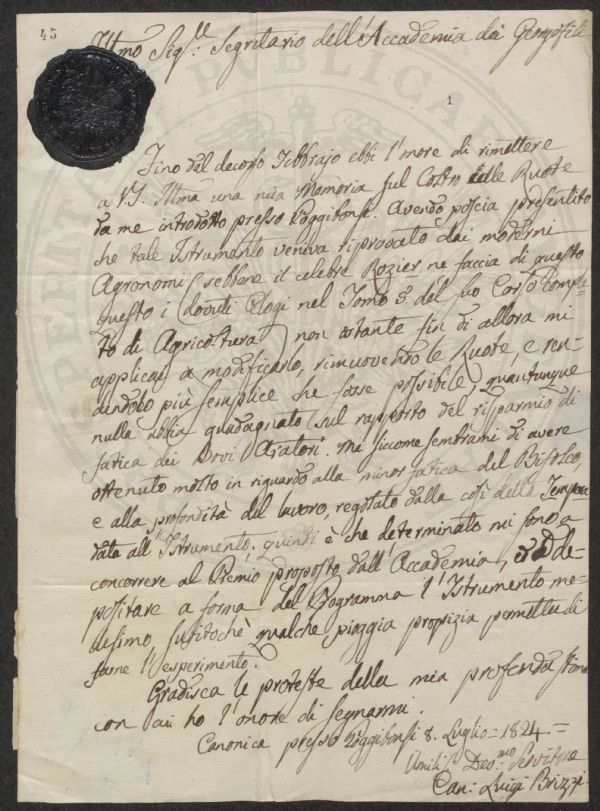 45
Illmo Sig.r Segretario dell'Accademia dei Georgofili
1
Fino dal decorso Febbrajo ebbi l'onore di rimettere
a VS. Illma una mia Memoria sul Coltro colle Ruote
da me introdotto presso Poggibonsi. Avendo poscia presentito
che tale Istrumento veniva riprovato dai moderni
Agronomi (sebbene il celebre Rozier ne faccia di questo
questo i dovuti Elogi nel Tomo 3. del suo Corso Comple-
to di Agricoltura) non ostante fin di allora mi
applicai a modificarlo, rimuovendo le Ruote, e ren-
dendolo più semplice che fosse possibile, quantunque
nulla abbia guadagnato sul rapporto del risparmio di
fatica dei Bovi Aratori. Mi siccome sembrami di avere
ottenuto molto in riguardo alla minor fatica del Bifolco,
e alla profondità del lavoro, regolato dalla così detta Tempera
data all'Istrumento, quindi è che determinato mi sono a
concorrere al Premio proposto dall'Accademia, e de-
positare a forma del Programma l'Istrumento me-
desimo, subitochè qualche pioggia propizia permetta di
farne l'esperimento.
Gradisca le proteste della mia profonda stima
con cui ho l'onore di segnarmi.
Canonica presso Poggibonsi 8. Luglio = 1824 =
Umilis. Dev.mo Servitore
Can: Luigi Brizzi